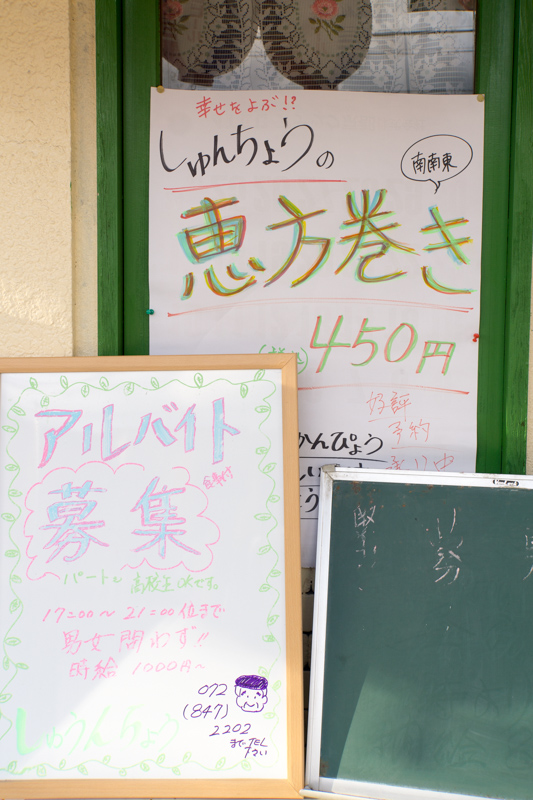 幸せをよぶ!?
しゅんちょうの
南南東
恵方巻き
(税込)450円
好評
予約
かんぴょう
アルバイト
募集
パートも高校生OKです。
17:00〜21:00位まで
男女問わず!!
時給1000円〜
072
(847)
2202
までTEL
下さい
しゅうんちょう